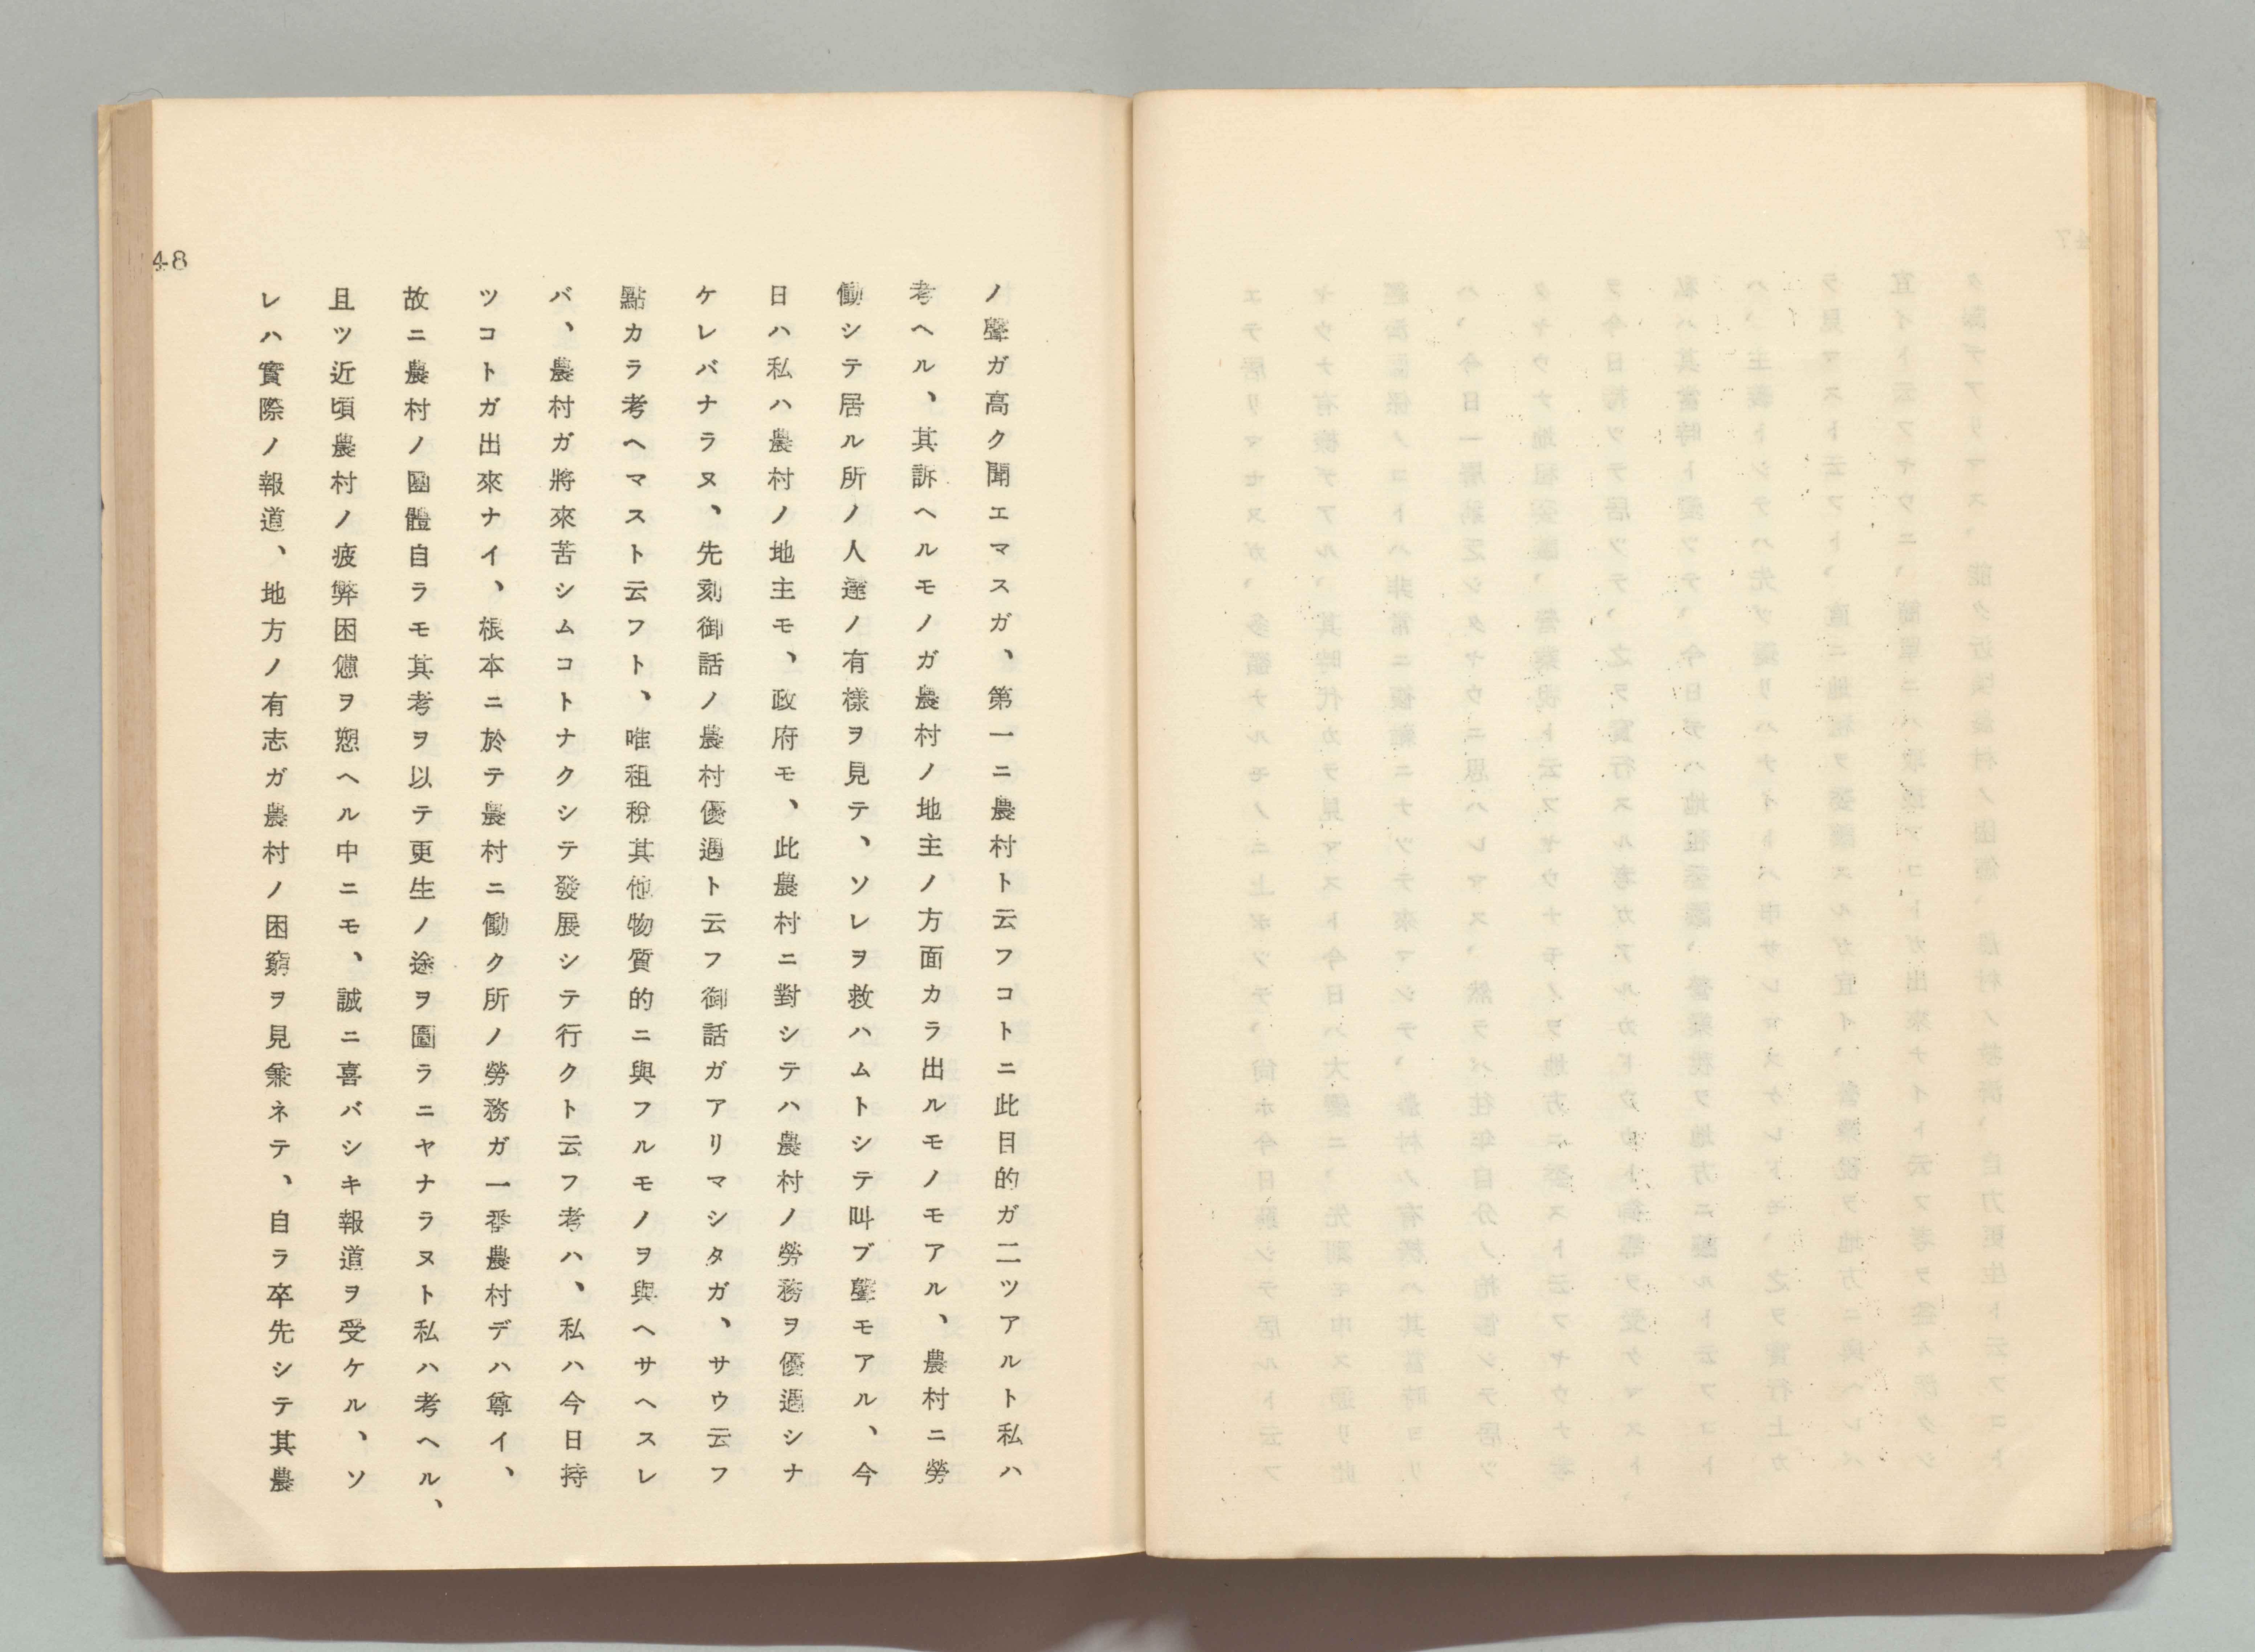 48
ノ聲ガ高ク聞エマスガ、第一ニ農村ト云フコトニ此目的ガ二ツアルト私ハ
考ヘル、其訴ヘルモノガ農村ノ地主ノ方面カラ出ルモノモアル、農村ニ勞
働シテ居ル所ノ人達ノ有樣ヲ見テ、ソレヲ救ハムトシテ叫ブ聲モアル、今
日ハ私ハ農村ノ地主モ、政府モ、此農村ニ對シテハ農村ノ勞務ヲ優遇シナ
ケレバナラヌ、先刻御話ノ農村優遇ト云フ御話ガアリマシタガ、サウ云フ
點カラ考ヘマスト云フト、唯租稅其他物質的ニ與フルモノヲ與ヘサヘスレ
バ、農村ガ將來苦シムコトナクシテ發展シテ行クト云フ考ハ、私ハ今日持
ツコトガ出來ナイ、根本ニ於テ農村ニ働ク所ノ勞務ガ一番農村デハ尊イ、
故ニ農村ノ團體自ラモ其考ヲ以テ更生ノ途ヲ圖ラニヤナラヌト私ハ考ヘル、
且ツ近頃農村ノ疲弊困憊ヲ愬ヘル中ニモ、誠ニ喜バシキ報道ヲ受ケル、ソ
レハ實際ノ報道、地方ノ有志ガ農村ノ困窮ヲ見兼ネテ、自ラ卒先シテ其農